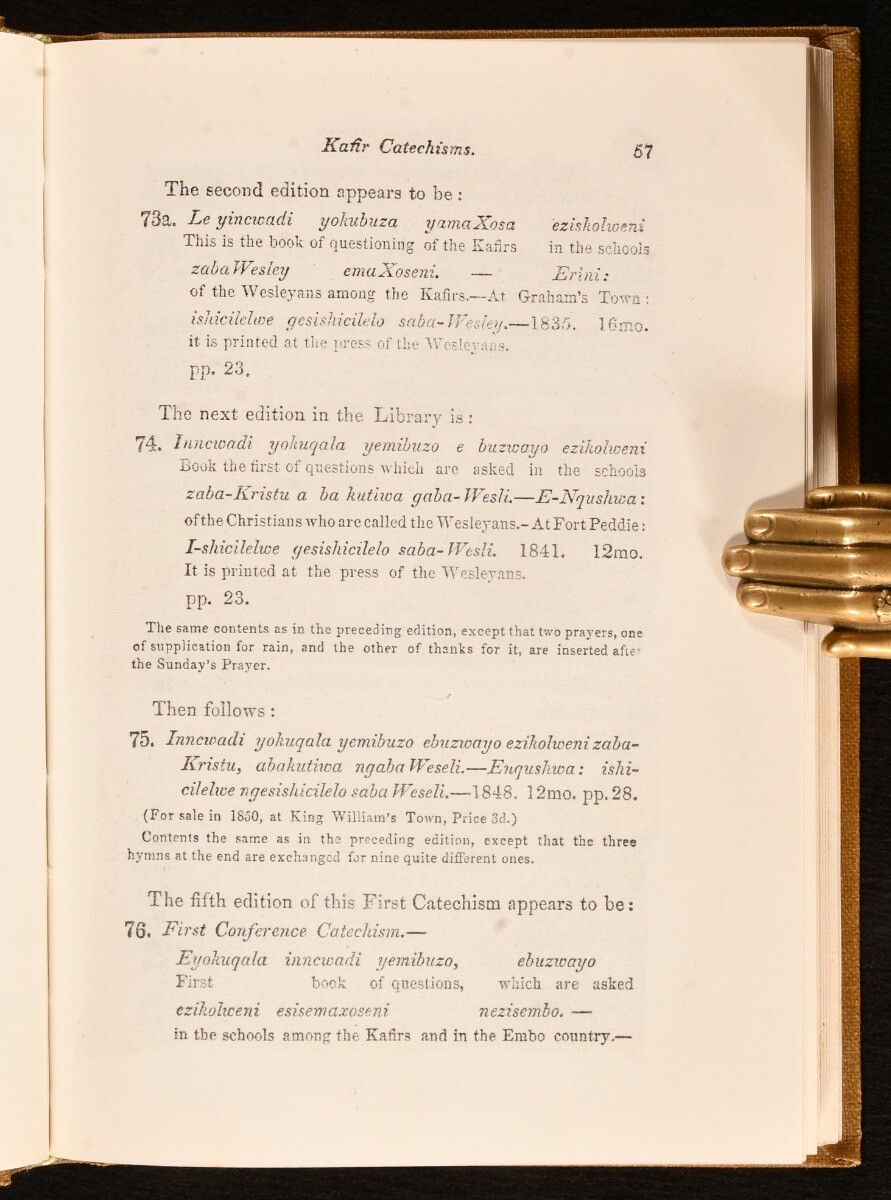 Kafir Catechisms. 57
The second edition appears to be :
73a. Le yincwadi yokubuza yamaXosa eziskolweni
This is the book of questioning of the Kafirs in the schools
zabaWesley emaXoseni. — Erini :
of the Wesleyans among the Kafirs.—At Graham's Town :
ishicilelwe gesishicilelo saba-Wesley.—1835. 16mo.
it is printed at the press of the Wesleyans.
pp. 23.
The next edition in the Library is :
74. Inncwadi yokuqala yemibuzo e buzwayo ezikolweni
Book the first of questions which are asked in the schools
zaba-Kristu a ba kutiwa gaba-Wesli.—E-Nqushwa :
of the Christians who are called the Wesleyans.- At Fort Peddie :
I-shicilelwe gesishicilelo saba-Wesli. 1841. 12mo.
It is printed at the press of the Wesleyans.
pp. 23.
The same contents as in the preceding edition, except that two prayers, one
of supplication for rain, and the other of thanks for it, are inserted after
the Sunday's Prayer.
Then follows :
75. Inncwadi yokuqala yemibuzo ebuzwayo ezikolweni zaba-
Kristu, abakutiwa ngaba Weseli.—Enqushwa : ishi-
cilelwe ngesishicilelo saba Weseli.—1848. 12mo. pp. 28.
(For sale in 1850, at King William's Town, Price 3d.)
Contents the same as in the preceding edition, except that the three
hymns at the end are exchanged for nine quite different ones.
The fifth edition of this First Catechism appears to be :
76. First Conference Catechism.—
Eyokuqala inncwadi yemibuzo, ebuzwayo
First book of questions, which are asked
ezikolweni esisemaxoseni nezisembo. —
in the schools among the Kafirs and in the Embo country.—